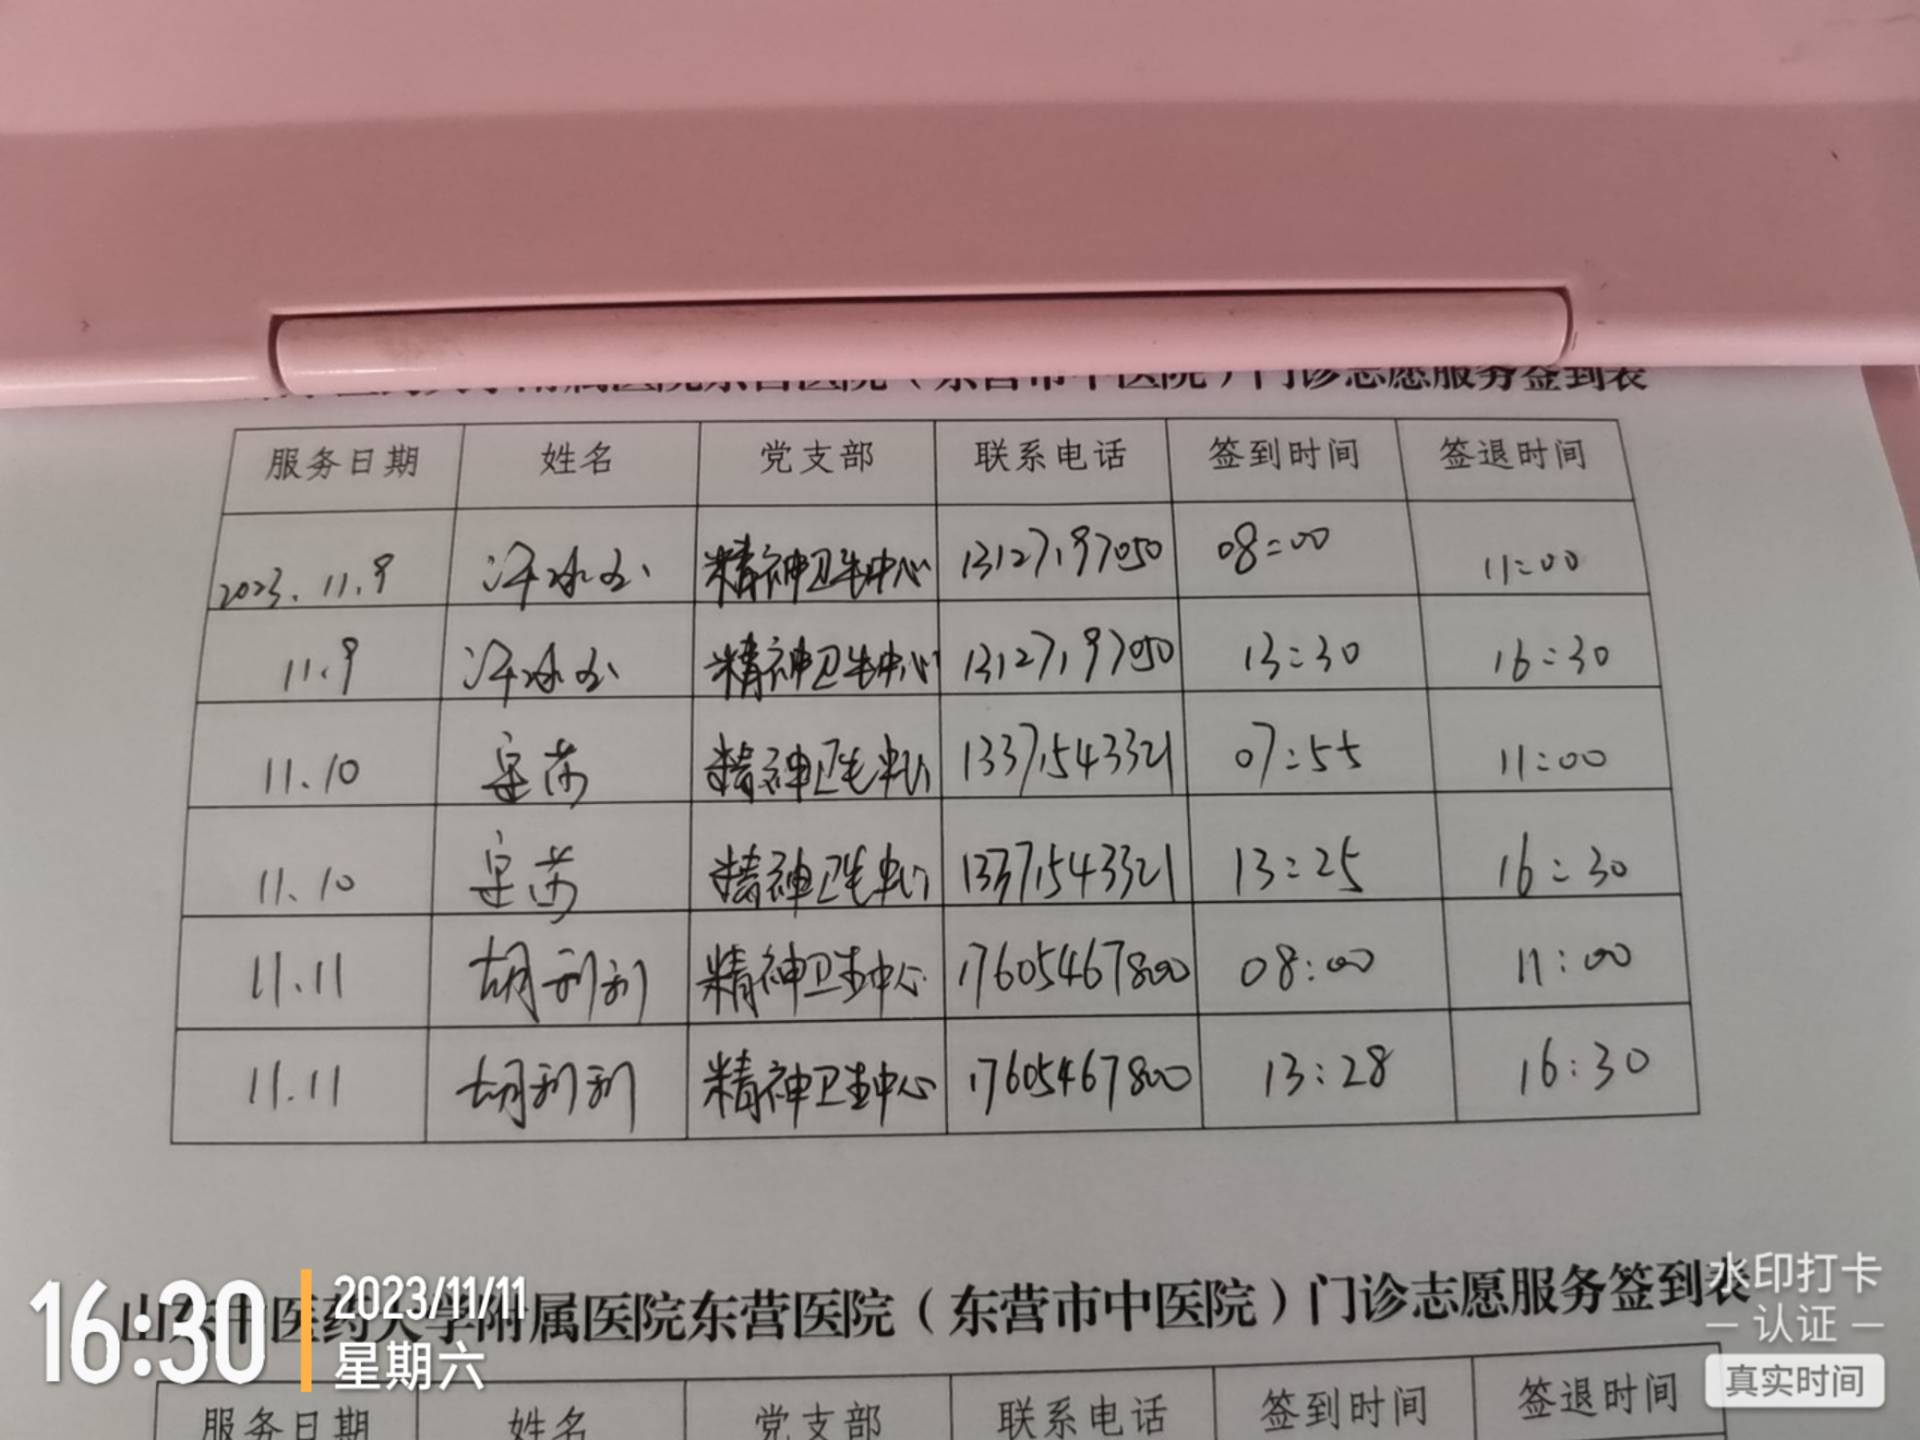 山东中医药大学附属医院东营医院（东营市中医院）门诊志愿服务签到表
服务日期 姓名 党支部 联系电话 签到时间 签退时间
2023.11.9 精神卫生中心 13127197050 08:00 11:00
11.9 精神卫生中心 13127197050 13:30 16:30
11.10 精神卫生中心 13371543321 07:55 11:00
11.10 精神卫生中心 13371543321 13:25 16:30
11.11 胡利利 精神卫生中心 17605467800 08:00 11:00
11.11 胡利利 精神卫生中心 17605467800 13:28 16:30
山东中医药大学附属医院东营医院（东营市中医院）门诊志愿服务签到表
服务日期 姓名 党支部 联系电话 签到时间 签退时间
16:30
2023/11/11
星期六
水印打卡
认证
真实时间